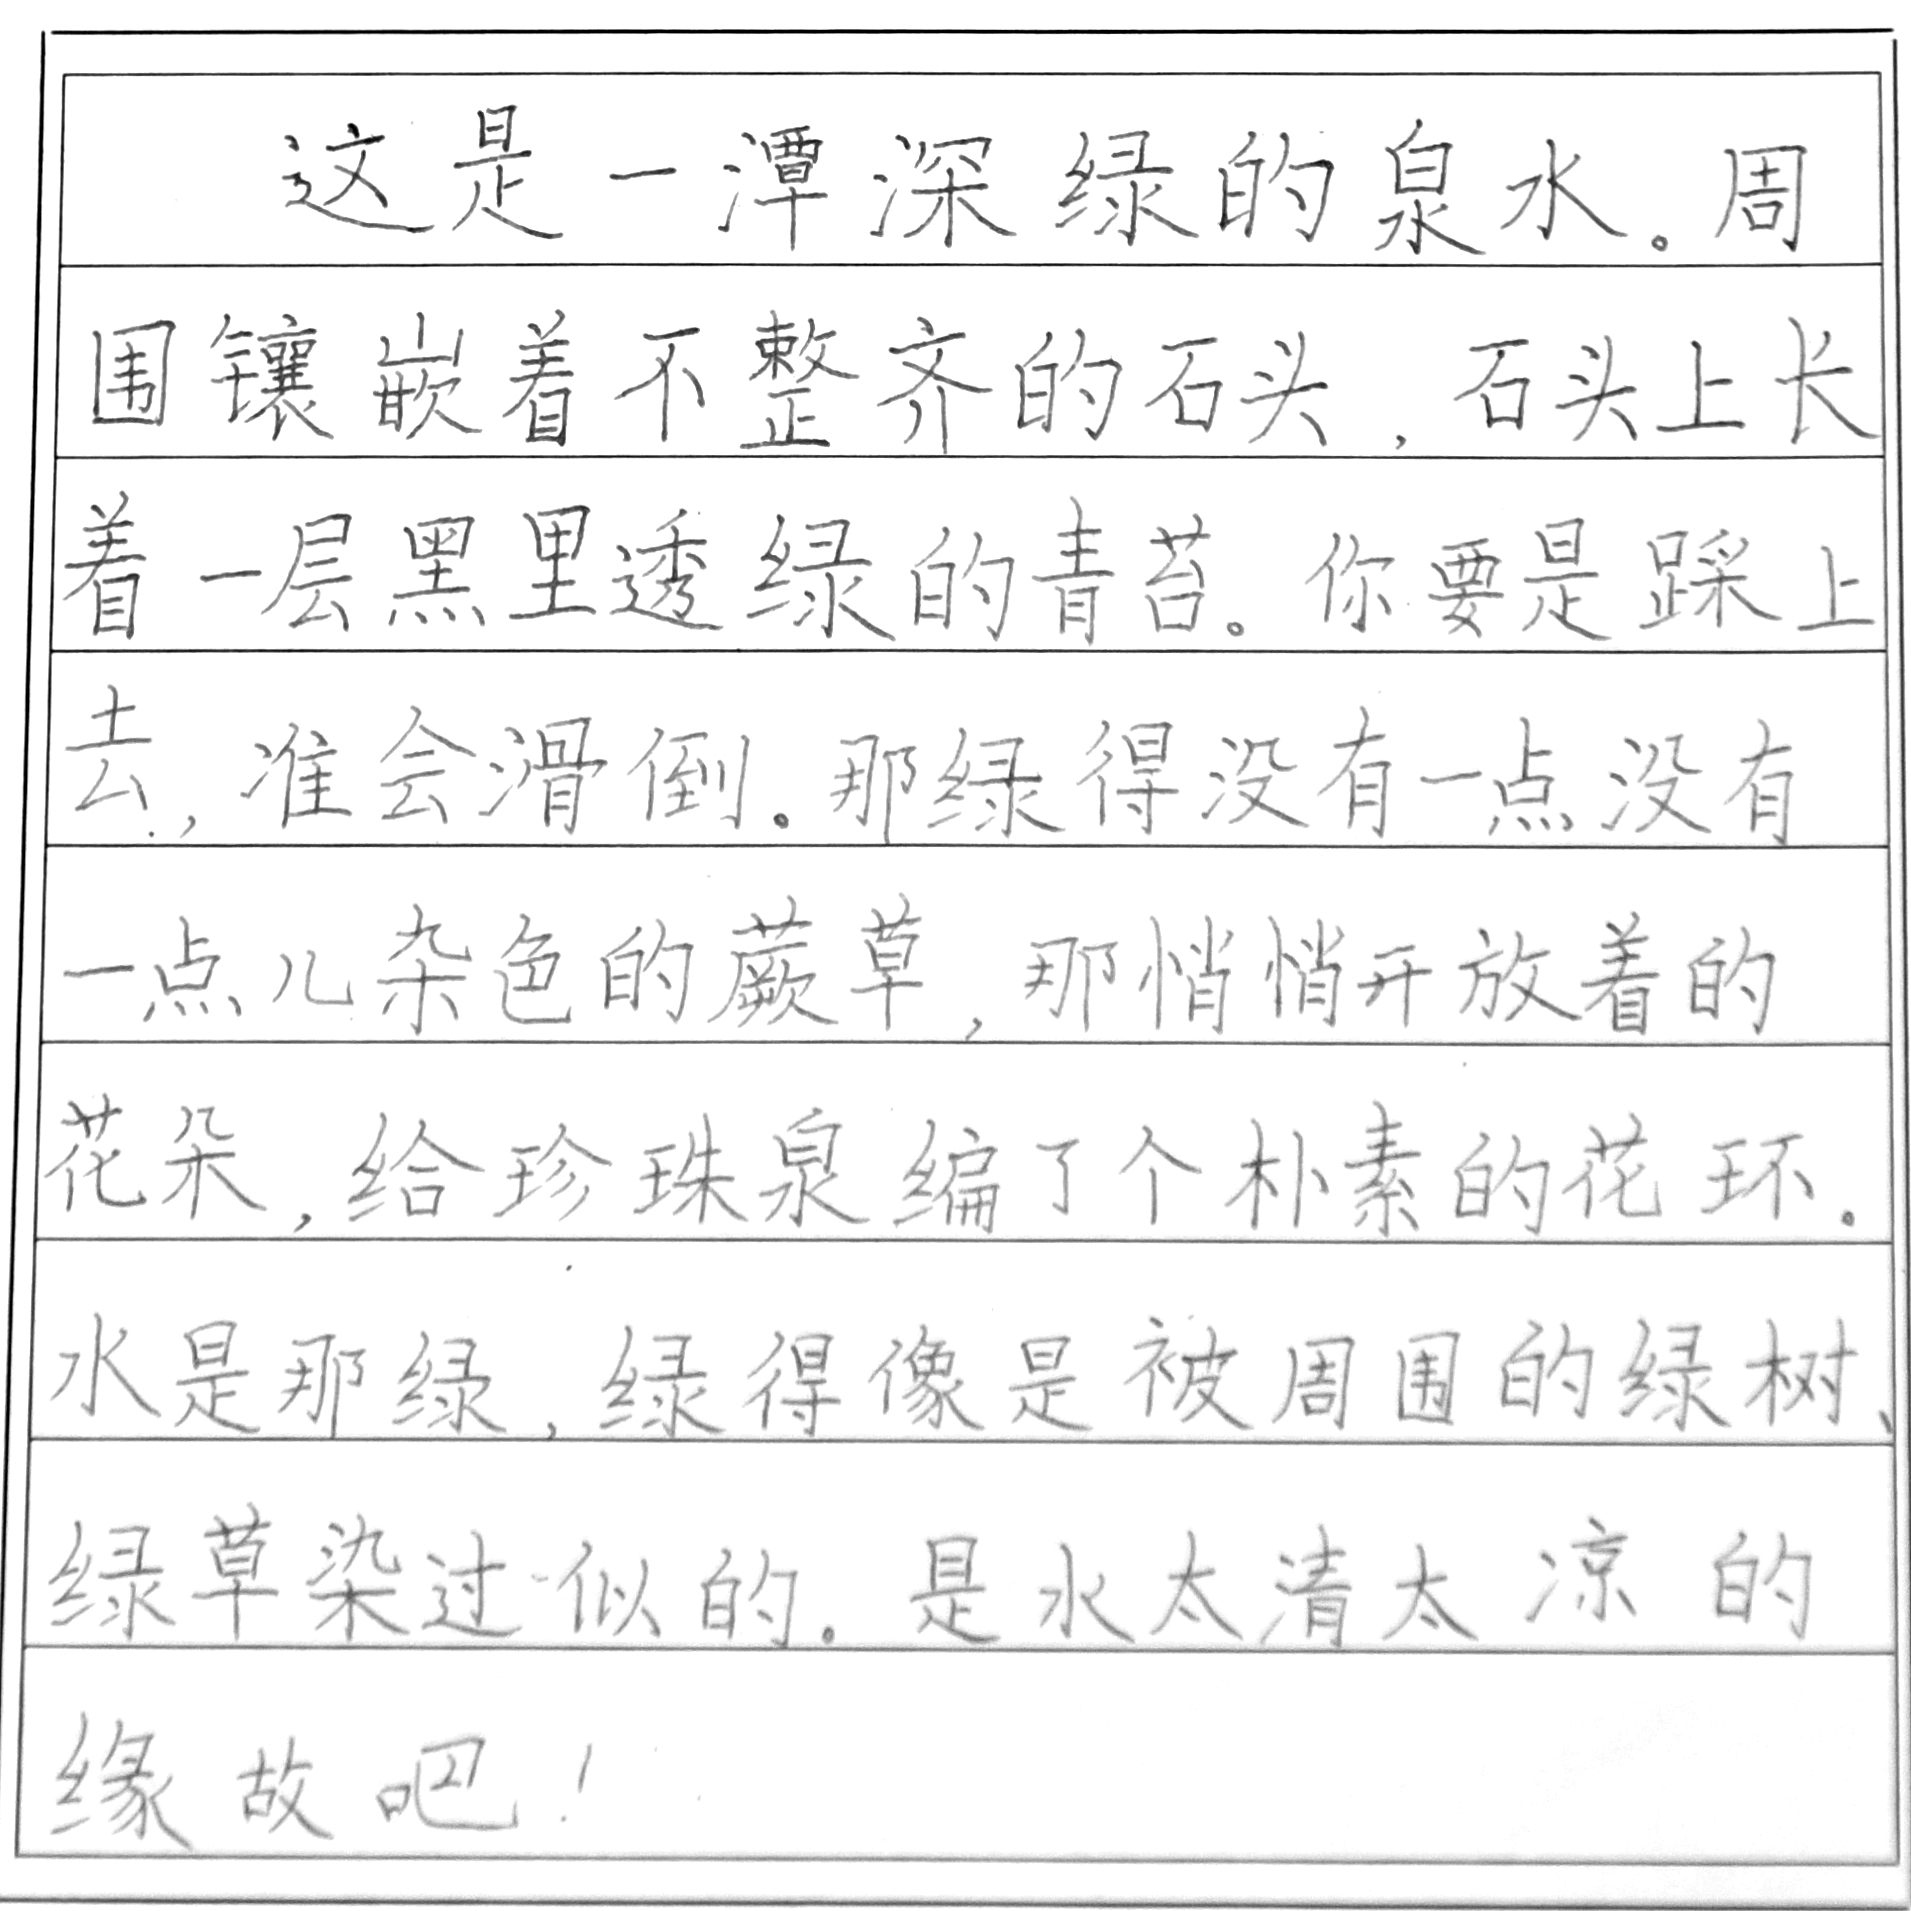 这是一潭深绿的泉水。周
围镶嵌着不整齐的石头，石头上长
着一层黑里透绿的青苔。你要是踩上
去，准会滑倒。那绿得没有一点没有
一点儿杂色的蕨草，那悄悄开放着的
花朵，给珍珠泉编了个朴素的花环。
水是那绿，绿得像是被周围的绿树、
绿草染过似的。是水太清太凉的
缘故吧！